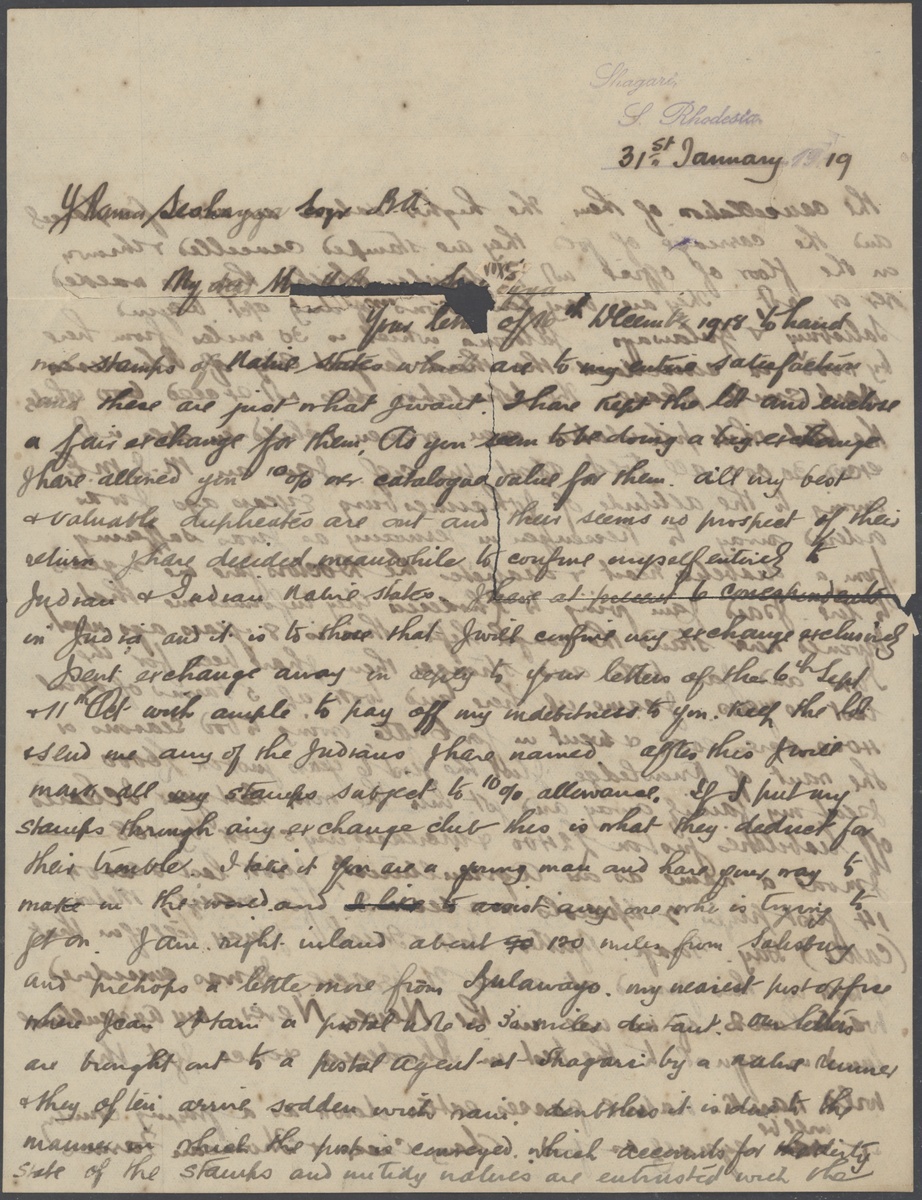 Shagari,
S. Rhodesia
31st January 1919
Y Rama Seshayya Esqr B.A.
My dear M
Your letter of 10th December 1918 to hand
with stamps of Native states which are to my entire satisfaction
these are just what I want. I have kept the lot and enclose
a fair exchange for them. As you seem to be doing a big exchange
I have allowed you 10% over catalogue value for them. All my best
& valuable duplicates are out and their seems no prospect of their
return I have decided meanwhile to confine myself entirely to
Indian & Indian Native states. I have at present 6 correspondents
in India and it is to those that I will confine my exchange exclusively
I sent exchange away in reply to your letters of the 6th Sept
& 11th Oct with ample to pay off my indebitness to you. Keep the lot
& send me any of the Indians I have named. After this I will
mark all my stamps subject to 10% allowance. If I put my
stamps through any exchange club this is what they deduct for
their trouble. I take it you are a young man and have your way to
make in the world and I like to assist any one who is trying to
get on. I am right inland about 90 120 miles from Salisbury
and prehaps a little more from Bulawayo. My nearest post office
where I can obtain a postal note is 30 miles distant. Our letters
are brought out to a postal agent at Shagari by a native runner
& they often arrive sodden with rain. doubtless it is due to the
manner in which the post is conveyed which accounts for the dirty
state of the stamps and untidy natives are entrusted with the